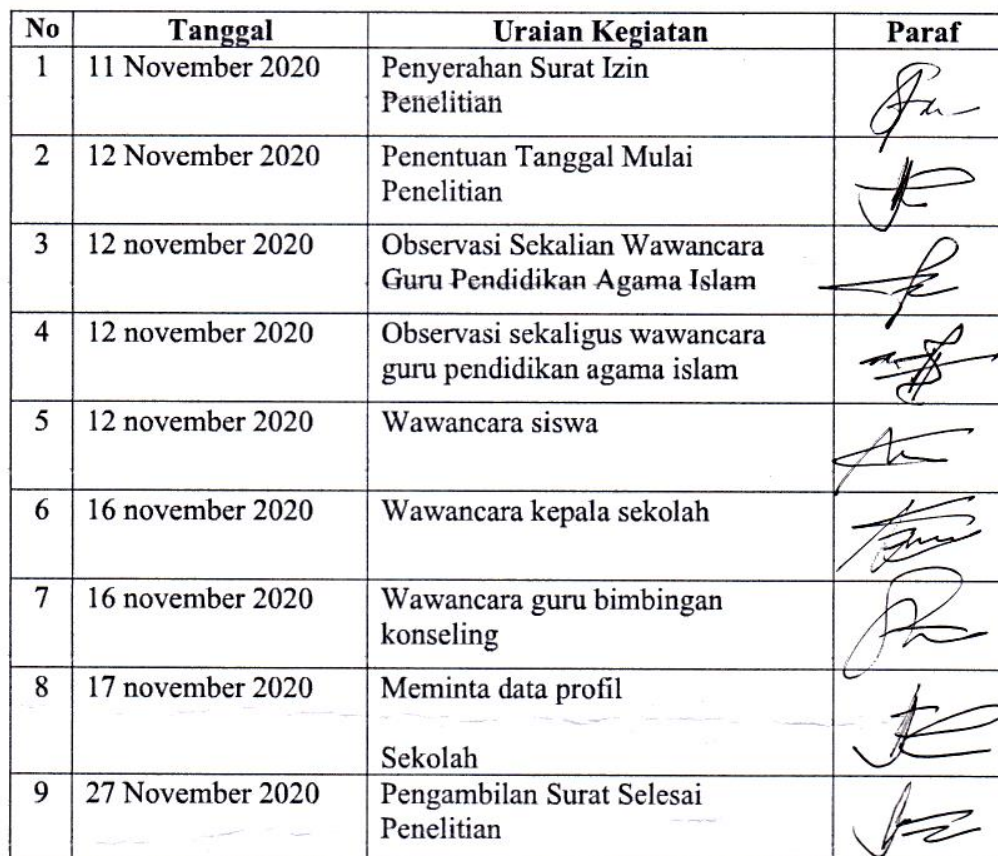 No Tanggal Uraian Kegiatan Paraf
1 11 November 2020 Penyerahan Surat Izin
Penelitian
2 12 November 2020 Penentuan Tanggal Mulai
Penelitian
3 12 november 2020 Observasi Sekalian Wawancara
Guru Pendidikan Agama Islam
4 12 november 2020 Observasi sekaligus wawancara
guru pendidikan agama islam
5 12 november 2020 Wawancara siswa
6 16 november 2020 Wawancara kepala sekolah
7 16 november 2020 Wawancara guru bimbingan
konseling
8 17 november 2020 Meminta data profil
Sekolah
9 27 November 2020 Pengambilan Surat Selesai
Penelitian